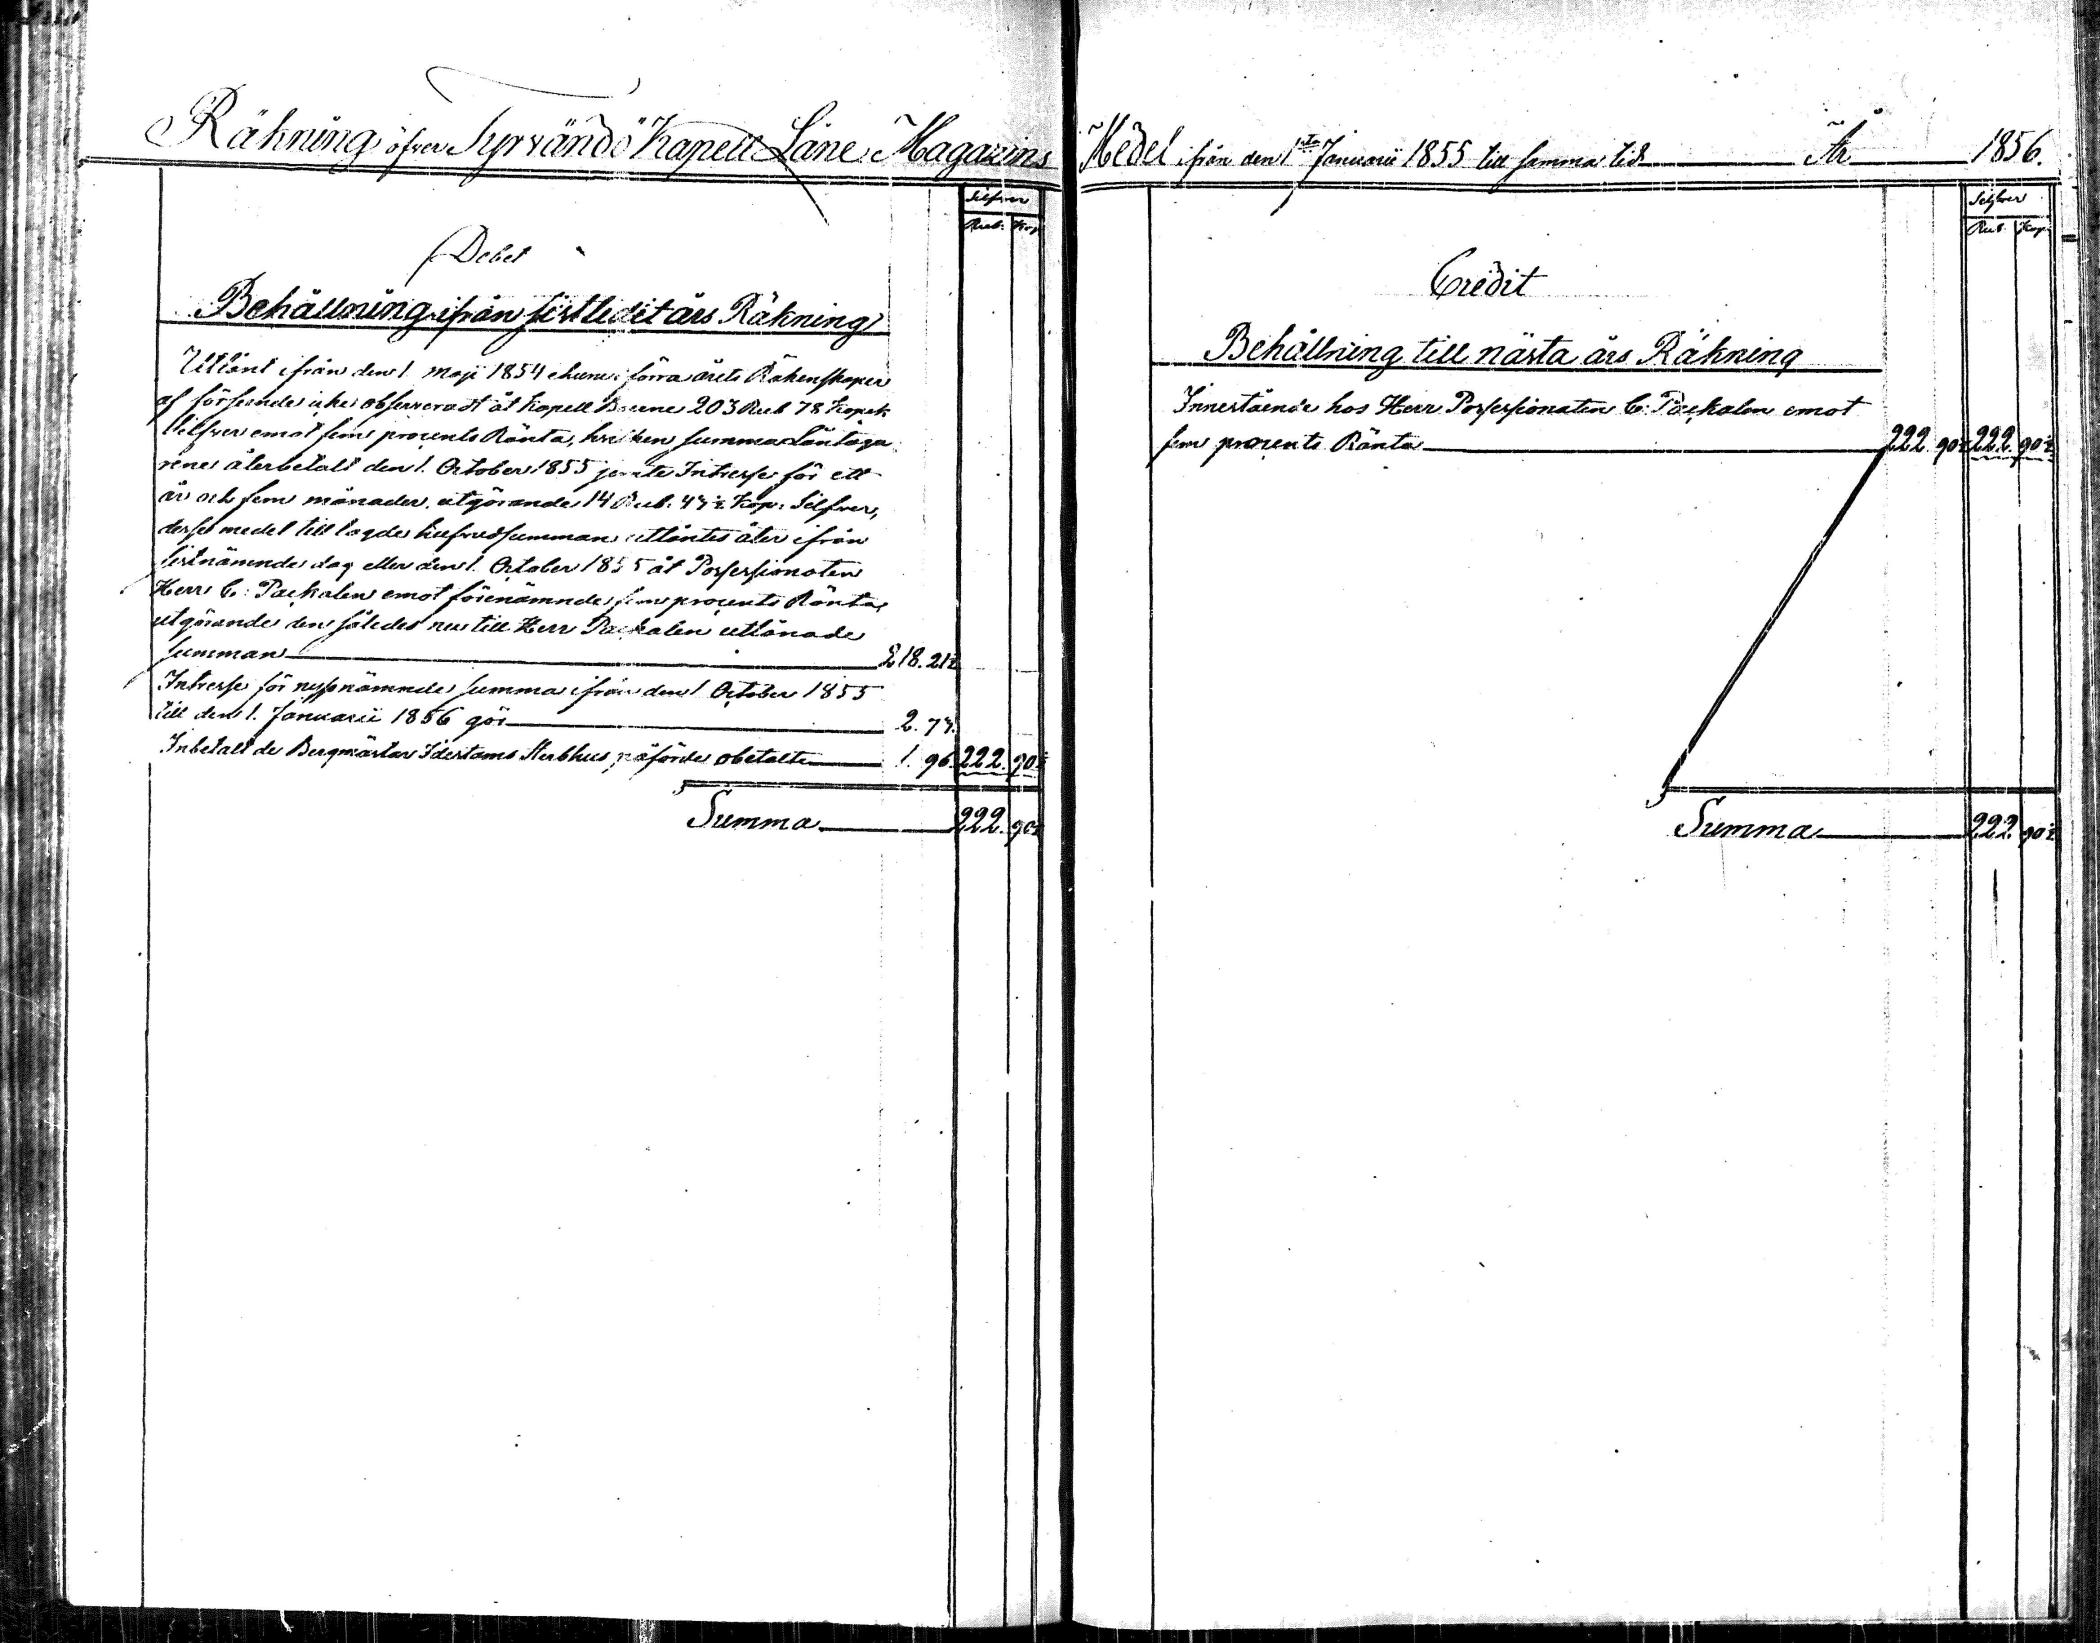 Räkning öfver Kyrvändö Kapell Låne Magazins
Silfver
Rub. Kop
Debet
Behållning ifrån sistledit års Räkning
Utlånt ifrån den 1 Maji 1854 ehuru i förra årets Räkenskaper
af förseende icke observeradt åt Kapell Boerne 203 Rub 78 Kopek
Silfver emot fem procents Ränta, hvilken summa Låntaga
rene återbetalt den 1. October 1855 jemte Intresse för ett
år och fem månader, utgörande 14 Rub. 43½ Kop. Silfver,
desse medel till lagde hufvudsumman utlåntes åter ifrån
sistnämnde dag eller den 1. October 1855 åt Possessionaten
Herr C: Packalen emot förenämnde fem procents Ränta,
utgörande den således nu till Herr Packalen utlånade
summan 218. 21½
Intresse för nyssnämnde summa ifrån den 1 October 1855
till den 1. Januarii 1856 gör 2. 73.
Inbetalt de Bergmästar Idestams Sterbhus påförde obetalte 1. 96. 222. 90½
Summa 222. 90½
Medel ifrån den 1ste Januarii 1855 till samma tid År 1856.
Silfver
Rub. Kop.
Credit
Behållning till nästa års Räkning
Innestående hos Herr Possessionaten C: Packalen emot
fem procents Ränta 222 90½ 222. 90½
Summa 222. 90½